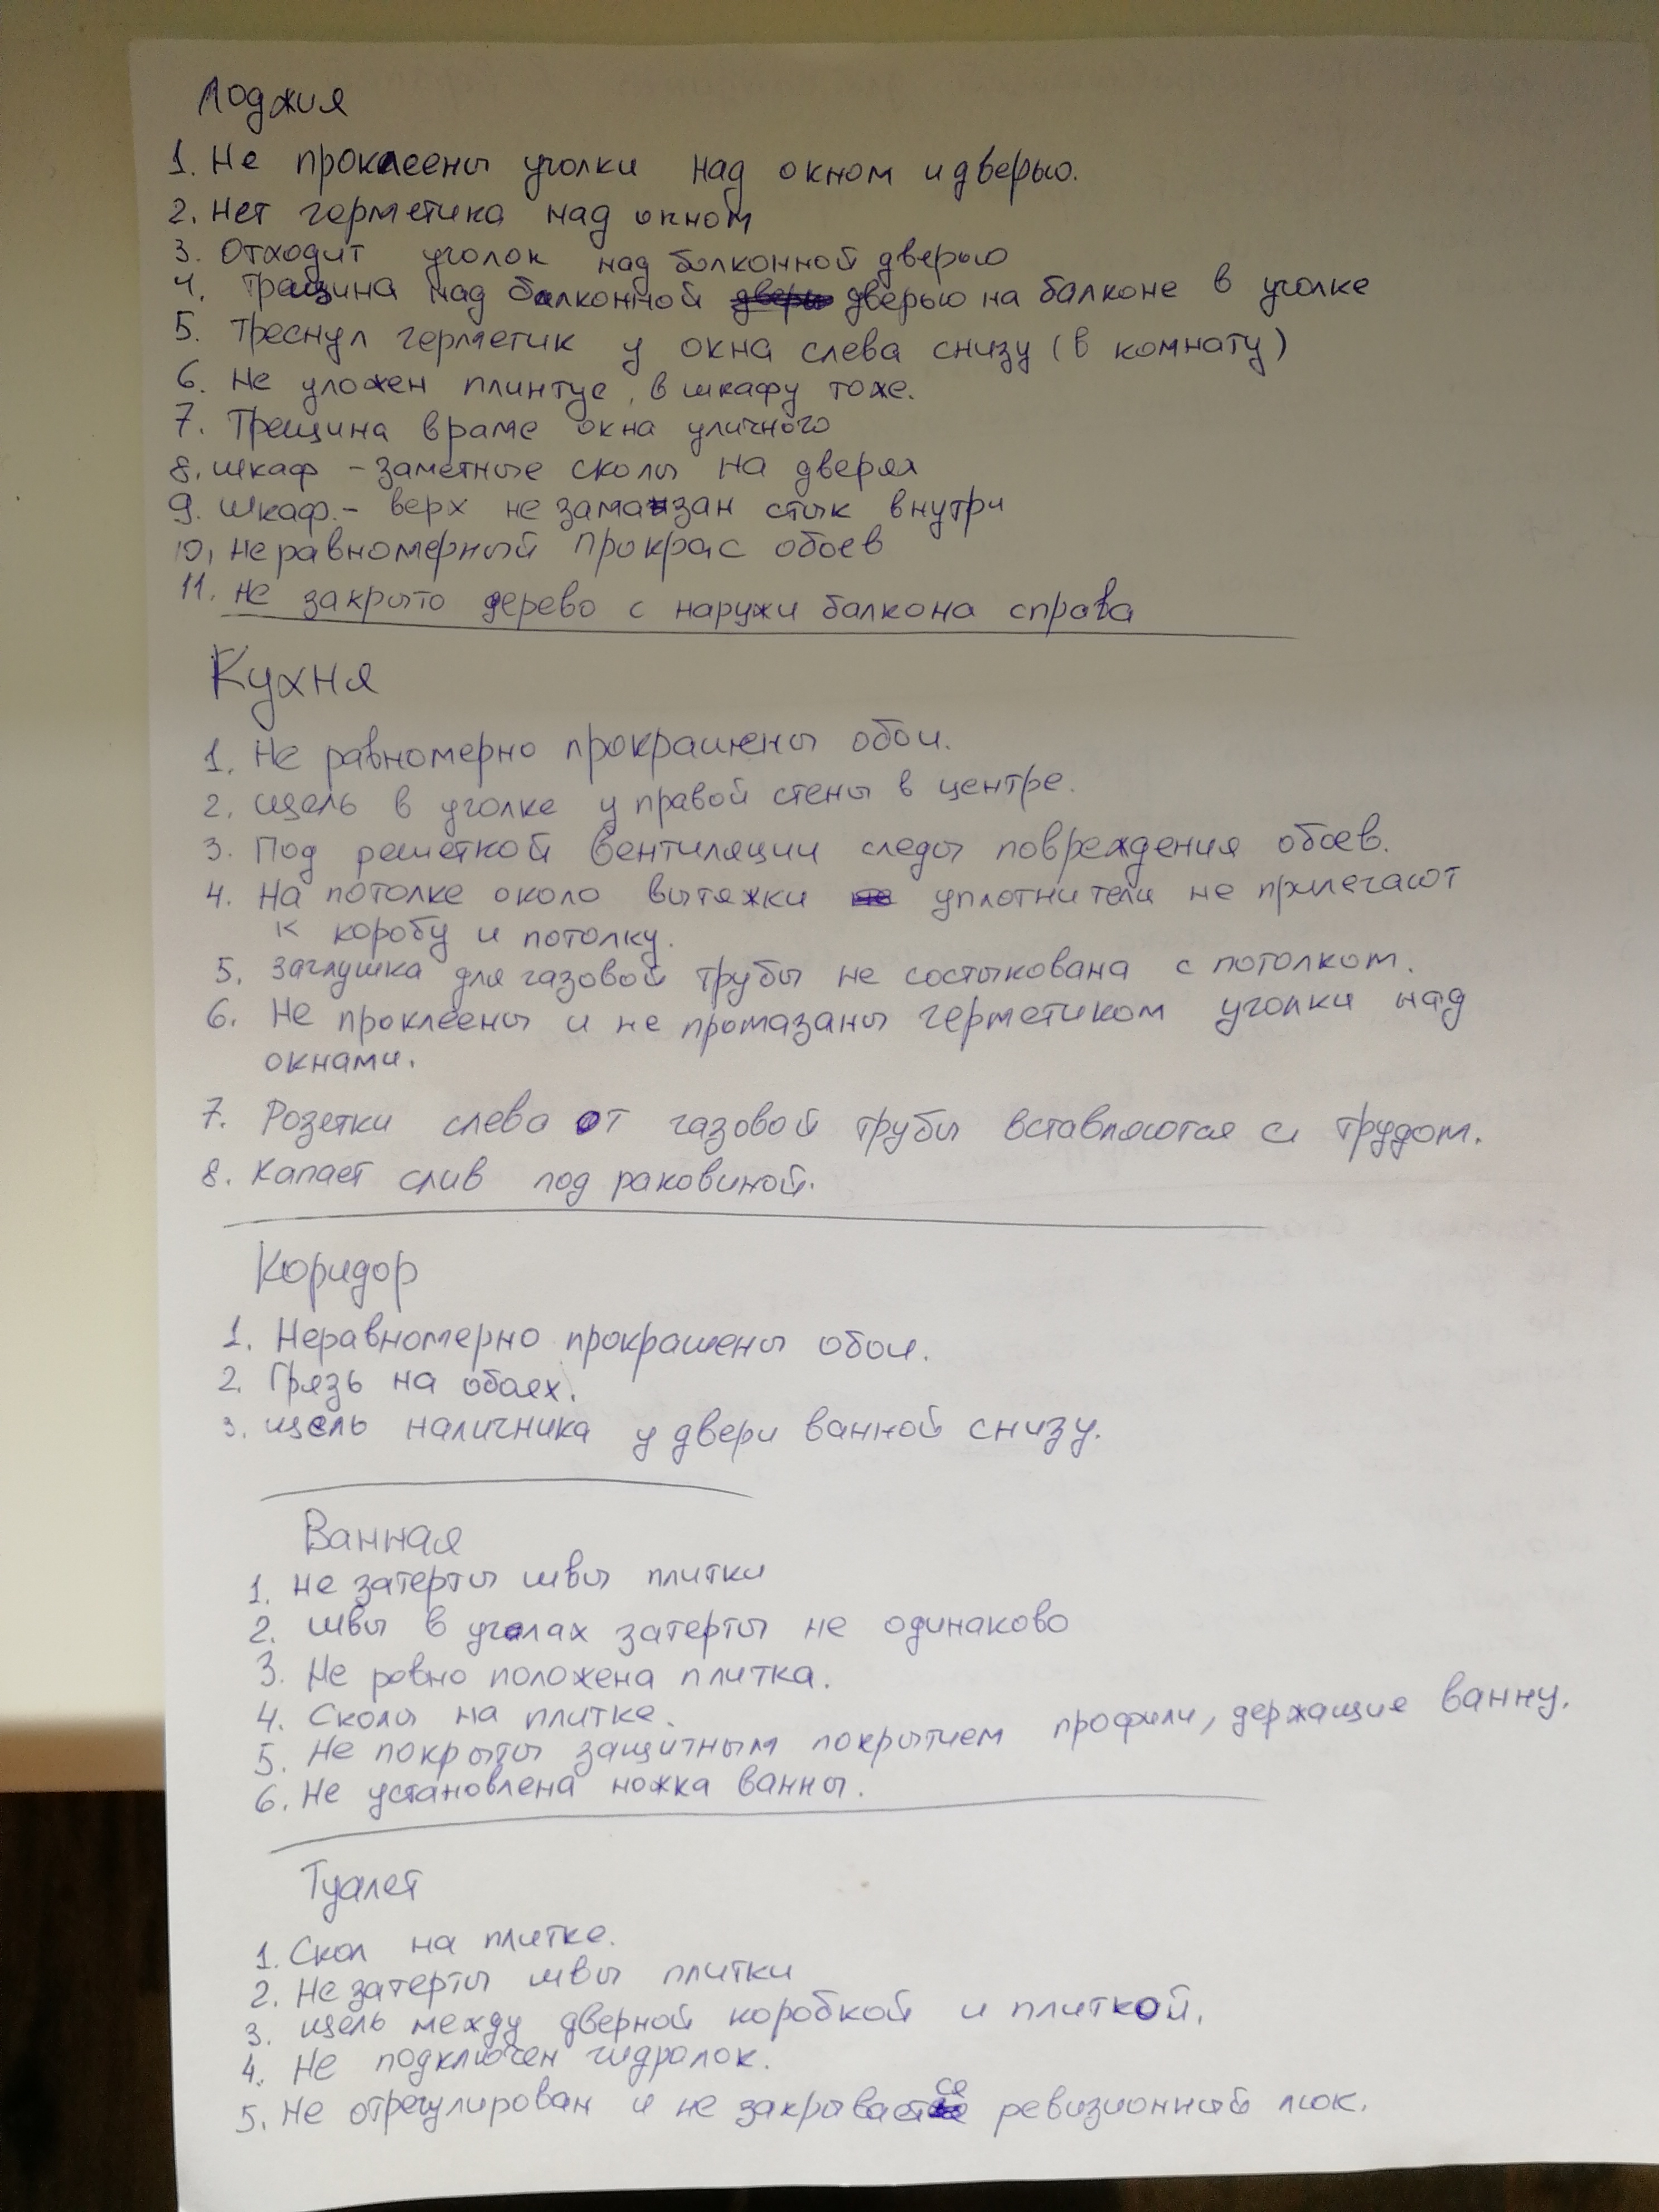 Лоджия
1. Не проклеены уголки над окном и дверью.
2. Нет герметика над окном
3. Отходит уголок над болконной дверью
4. Трещина над балконной дверью на балконе в уголке
5. Треснул герметик у окна слева снизу (в комнату)
6. Не уложен плинтус, в шкафу тоже.
7. Трещина в раме окна уличного
8. шкаф - заметные сколы на дверях
9. шкаф. - верх не замазан стык внутри
10, неравномерный прокрас обоев
11. не закрыто дерево с наружи балкона справа
Кухня
1. Не равномерно прокрашены обои.
2. щель в уголке у правой стены в центре.
3. Под решеткой вентиляции следы повреждения обоев.
4. На потолке около вытяжки уплотнители не прилегают
к коробу и потолку.
5. заглушка для газовой трубы не состыкована с потолком.
6. Не проклеены и не промазаны герметиком уголки над
окнами.
7. Розетки слева от газовой трубы вставляются с трудом.
8. Капает слив под раковиной.
Коридор
1. Неравномерно прокрашены обои.
2. Грязь на обоях.
3. щель наличника у двери ванной снизу.
Ванная
1. не затерты швы плитки
2. швы в углах затерты не одинаково
3. Не ровно положена плитка.
4. Сколы на плитке.
5. Не покрыты защитным покрытием профили, держащие ванну.
6. Не установлена ножка ванны.
Туалет
1. Скол на плитке.
2. Не затерты швы плитки
3. щель между дверной коробкой и плиткой.
4. Не подключен гидролок.
5. Не отрегулирован и не закрывается ревизионный люк.